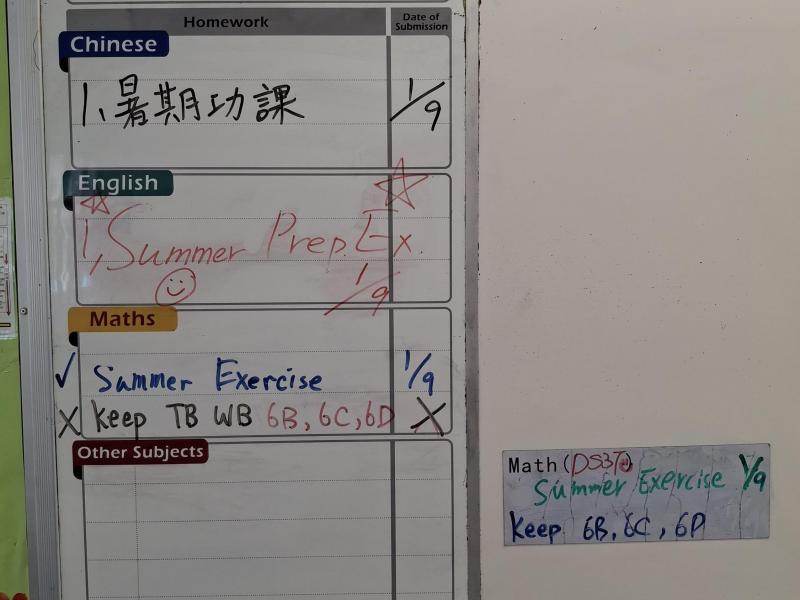 Homework Date of Submission
Chinese
1、暑期功課 1/9
English
1, Summer Prep. Ex.
1/9
Maths
✓ Summer Exercise 1/9
X Keep TB WB 6B, 6C, 6D X
Other Subjects
Math (DS3T)
Summer Exercise 1/9
Keep 6B, 6C, 6D